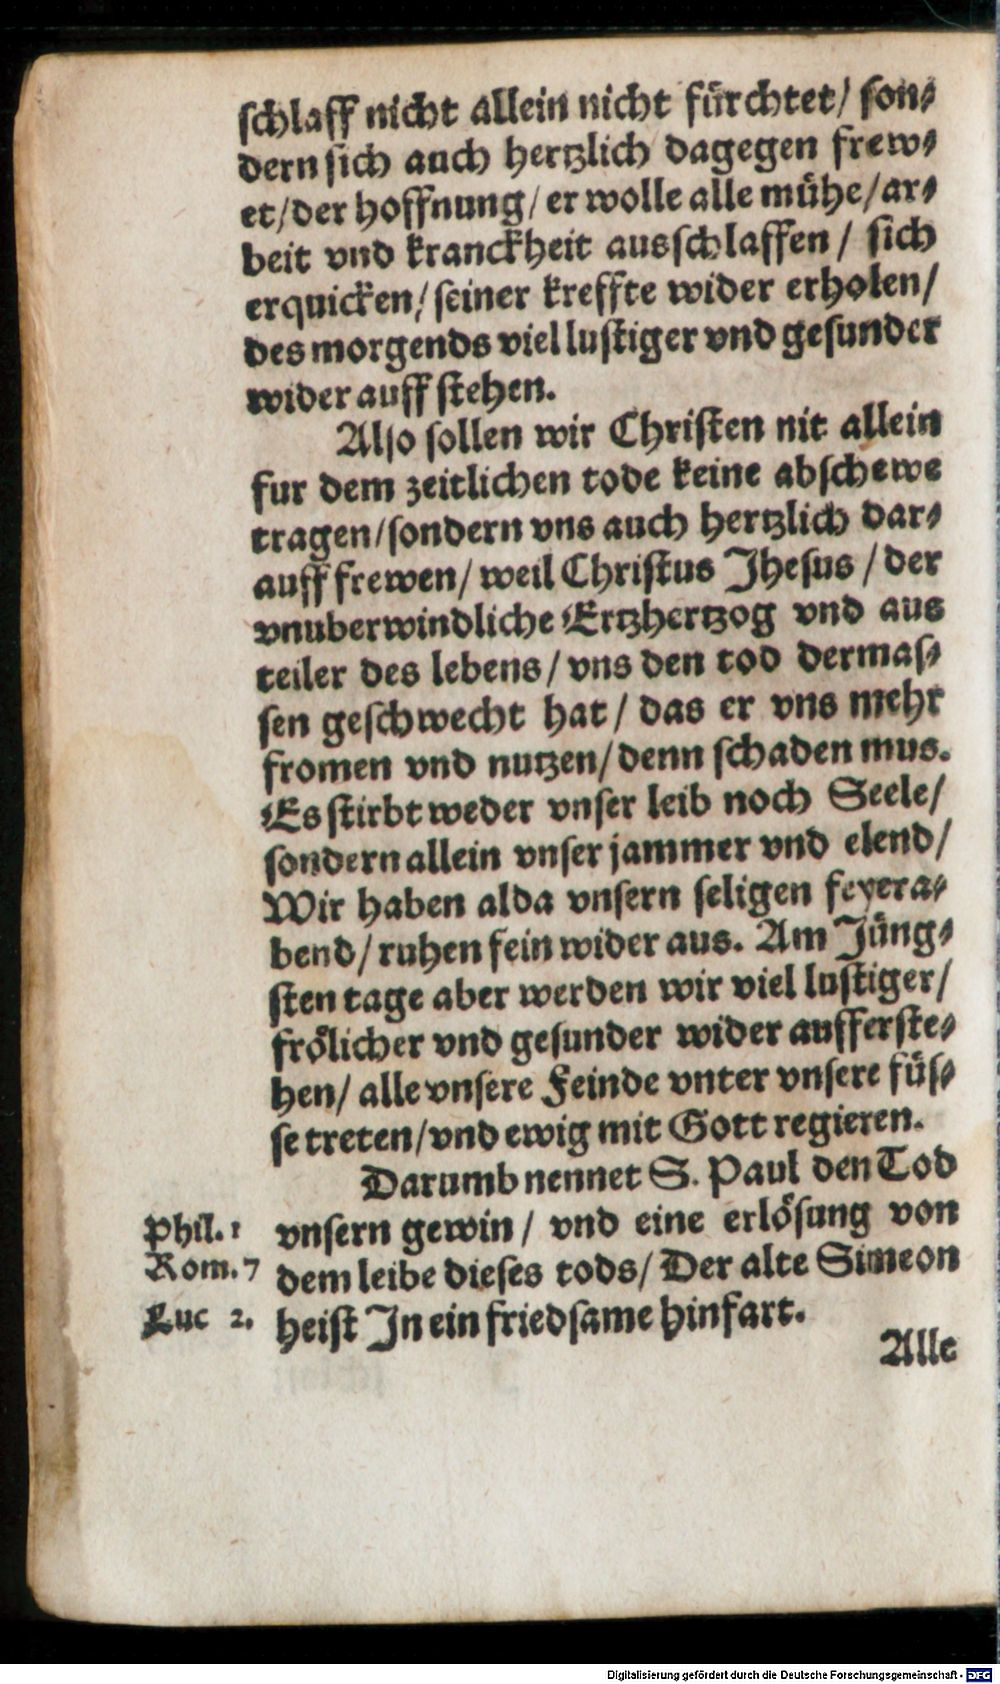 schlaff nicht allein nicht fürchtet/ son⸗
dern sich auch hertzlich dagegen frew⸗
et/der hoffnung/ er wolle alle mühe/ar⸗
beit vnd kranckheit ausschlaffen/ sich
erquicken/ seiner kreffte wider erholen/
des morgends viel lustiger vnd gesunder
wider auff stehen.
Also sollen wir Christen nit allein
fur dem zeitlichen tode keine abschewe
tragen/sondern vns auch hertzlich dar⸗
auff frewen/ weil Christus Jhesus/der
vnuberwindliche Ertzhertzog vnd aus
teiler des lebens/ vns den tod dermas⸗
sen geschwecht hat/ das er vns mehr
fromen vnd nutzen/denn schaden mus.
Es stirbt weder vnser leib noch Seele/
sondern allein vnser jammer vnd elend/
Wir haben alda vnsern seligen feyera⸗
bend/ruhen fein wider aus. Am Jüng⸗
sten tage aber werden wir viel lustiger/
frölicher vnd gesunder wider aufferste⸗
hen/ alle vnsere Feinde vnter vnsere füs⸗
se treten/vnd ewig mit Gott regieren.
Darumb nennet S. Paul den Tod
Phil. 1 vnsern gewin/ vnd eine erlösung von
Rom. 7 dem leibe dieses tods/ Der alte Simeon
Luc 2. heist Jn ein friedsame hinfart.
Alle
Digitalisierung gefördert durch die Deutsche Forschungsgemeinschaft - DFG